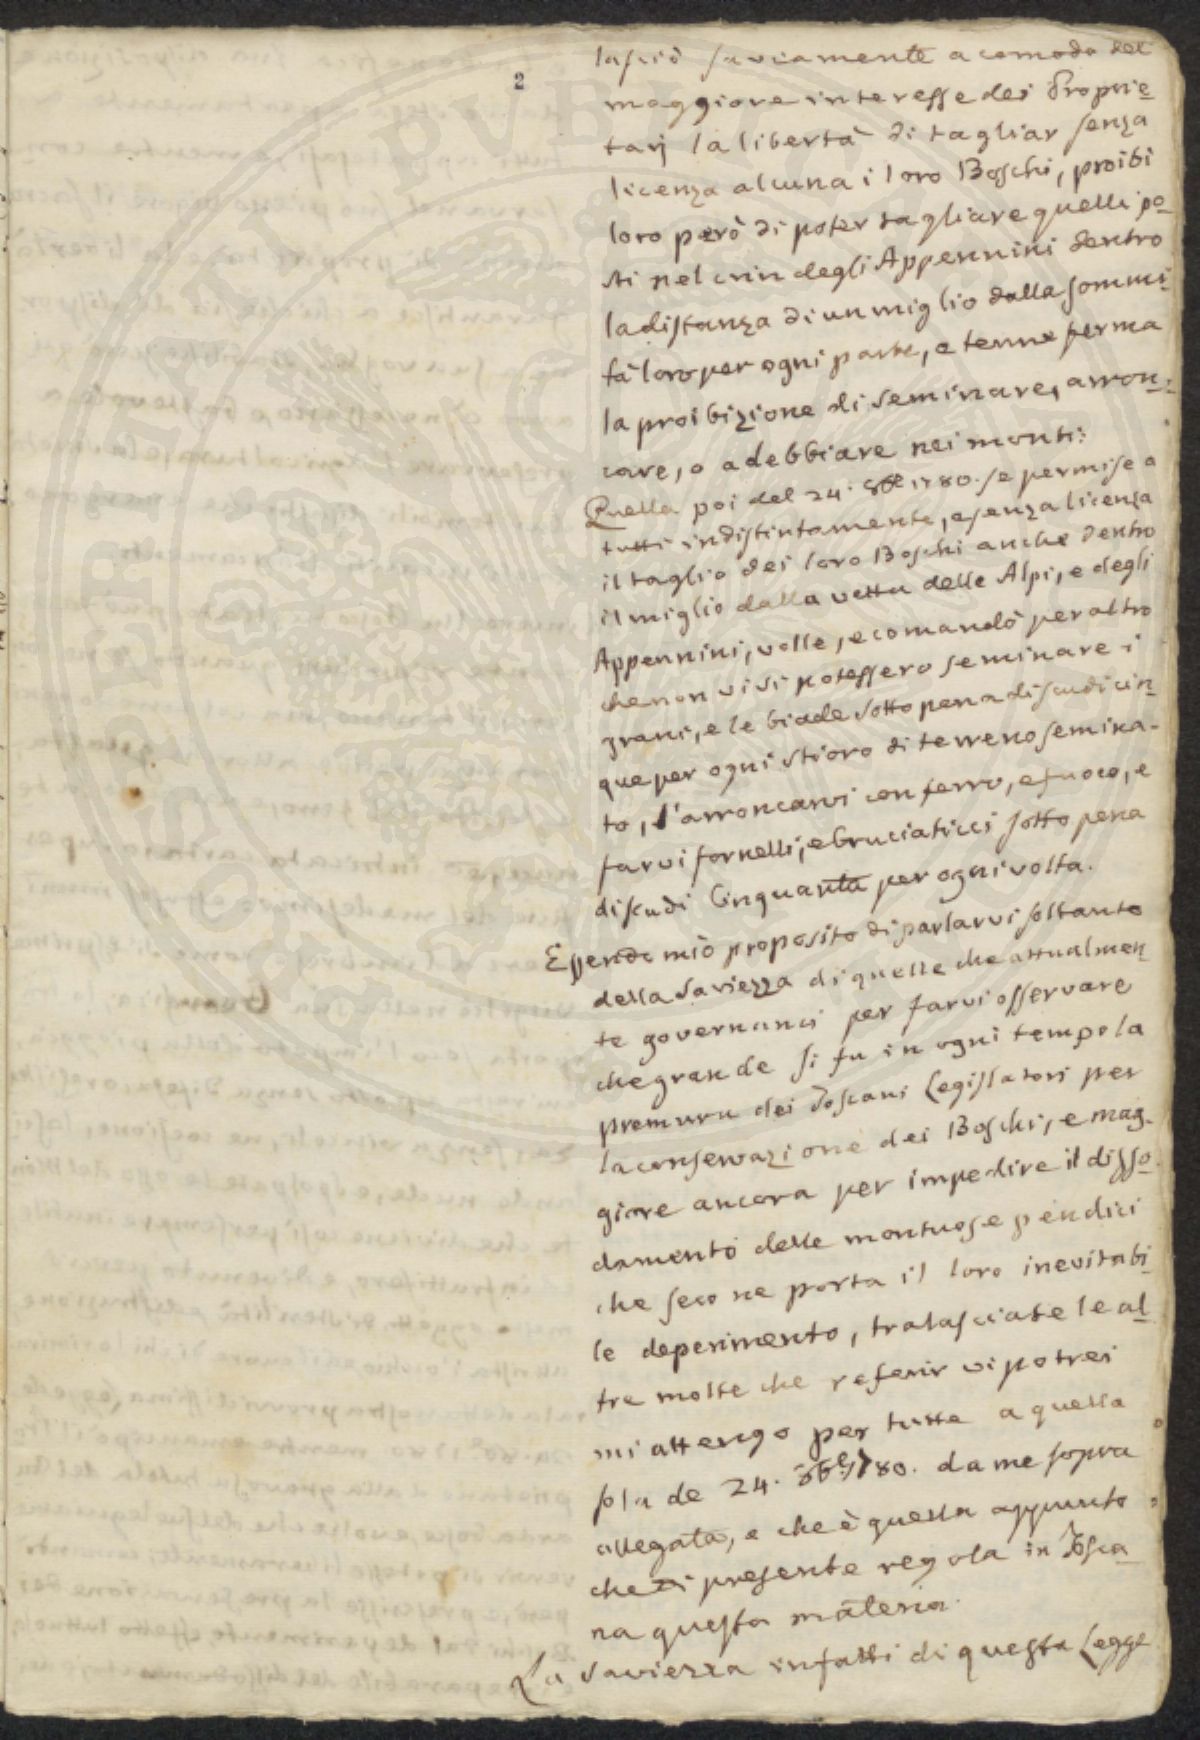 2
lasciò saviamente a comodo del
maggiore interesse dei Proprie-
tarj la libertà di tagliar senza
licenza alcuna i loro Boschi, proibì
loro però di poter tagliare quelli po-
sti nel crin degli Appennini dentro
la distanza di un miglio dalla sommi-
tà loro per ogni parte, e tenne ferma
la proibizione di seminare, arron-
care, o adebbiare nei monti:
Quella poi del 24. 8bre 1780. se permise a
tutti indistintamente, e senza licenza
il taglio dei loro Boschi anche dentro
il miglio dalla vetta delle Alpi, e degli
Appennini, volle, e comandò per altro
che non vi si potessero seminare i
grani, e le biade sotto pena di scudi cin-
que per ogni stioro di terreno semina-
to, l'arroncarvi con ferro, e fuoco, e
farvi fornelli, e bruciaticci sotto pena
di scudi Cinquanta per ogni volta.
Essendo mio proposito di parlarvi soltanto
della saviezza di quelle che attualmen-
te governanci per farvi osservare
che grande si fu in ogni tempo la
premura dei Toscani Legislatori per
la conservazione dei Boschi, e mag-
giore ancora per impedire il disso-
damento delle montuose pendici
che seco ne porta il loro inevitabi-
le deperimento, tralasciate le al-
tre molte che referir vi potrei
mi attengo per tutte a quella
sola de 24. 8bre 1780. da me sopra
allegata, e che è quella appunto
che di presente regola in Tosca-
na questa materia.
La saviezza infatti di questa Legge